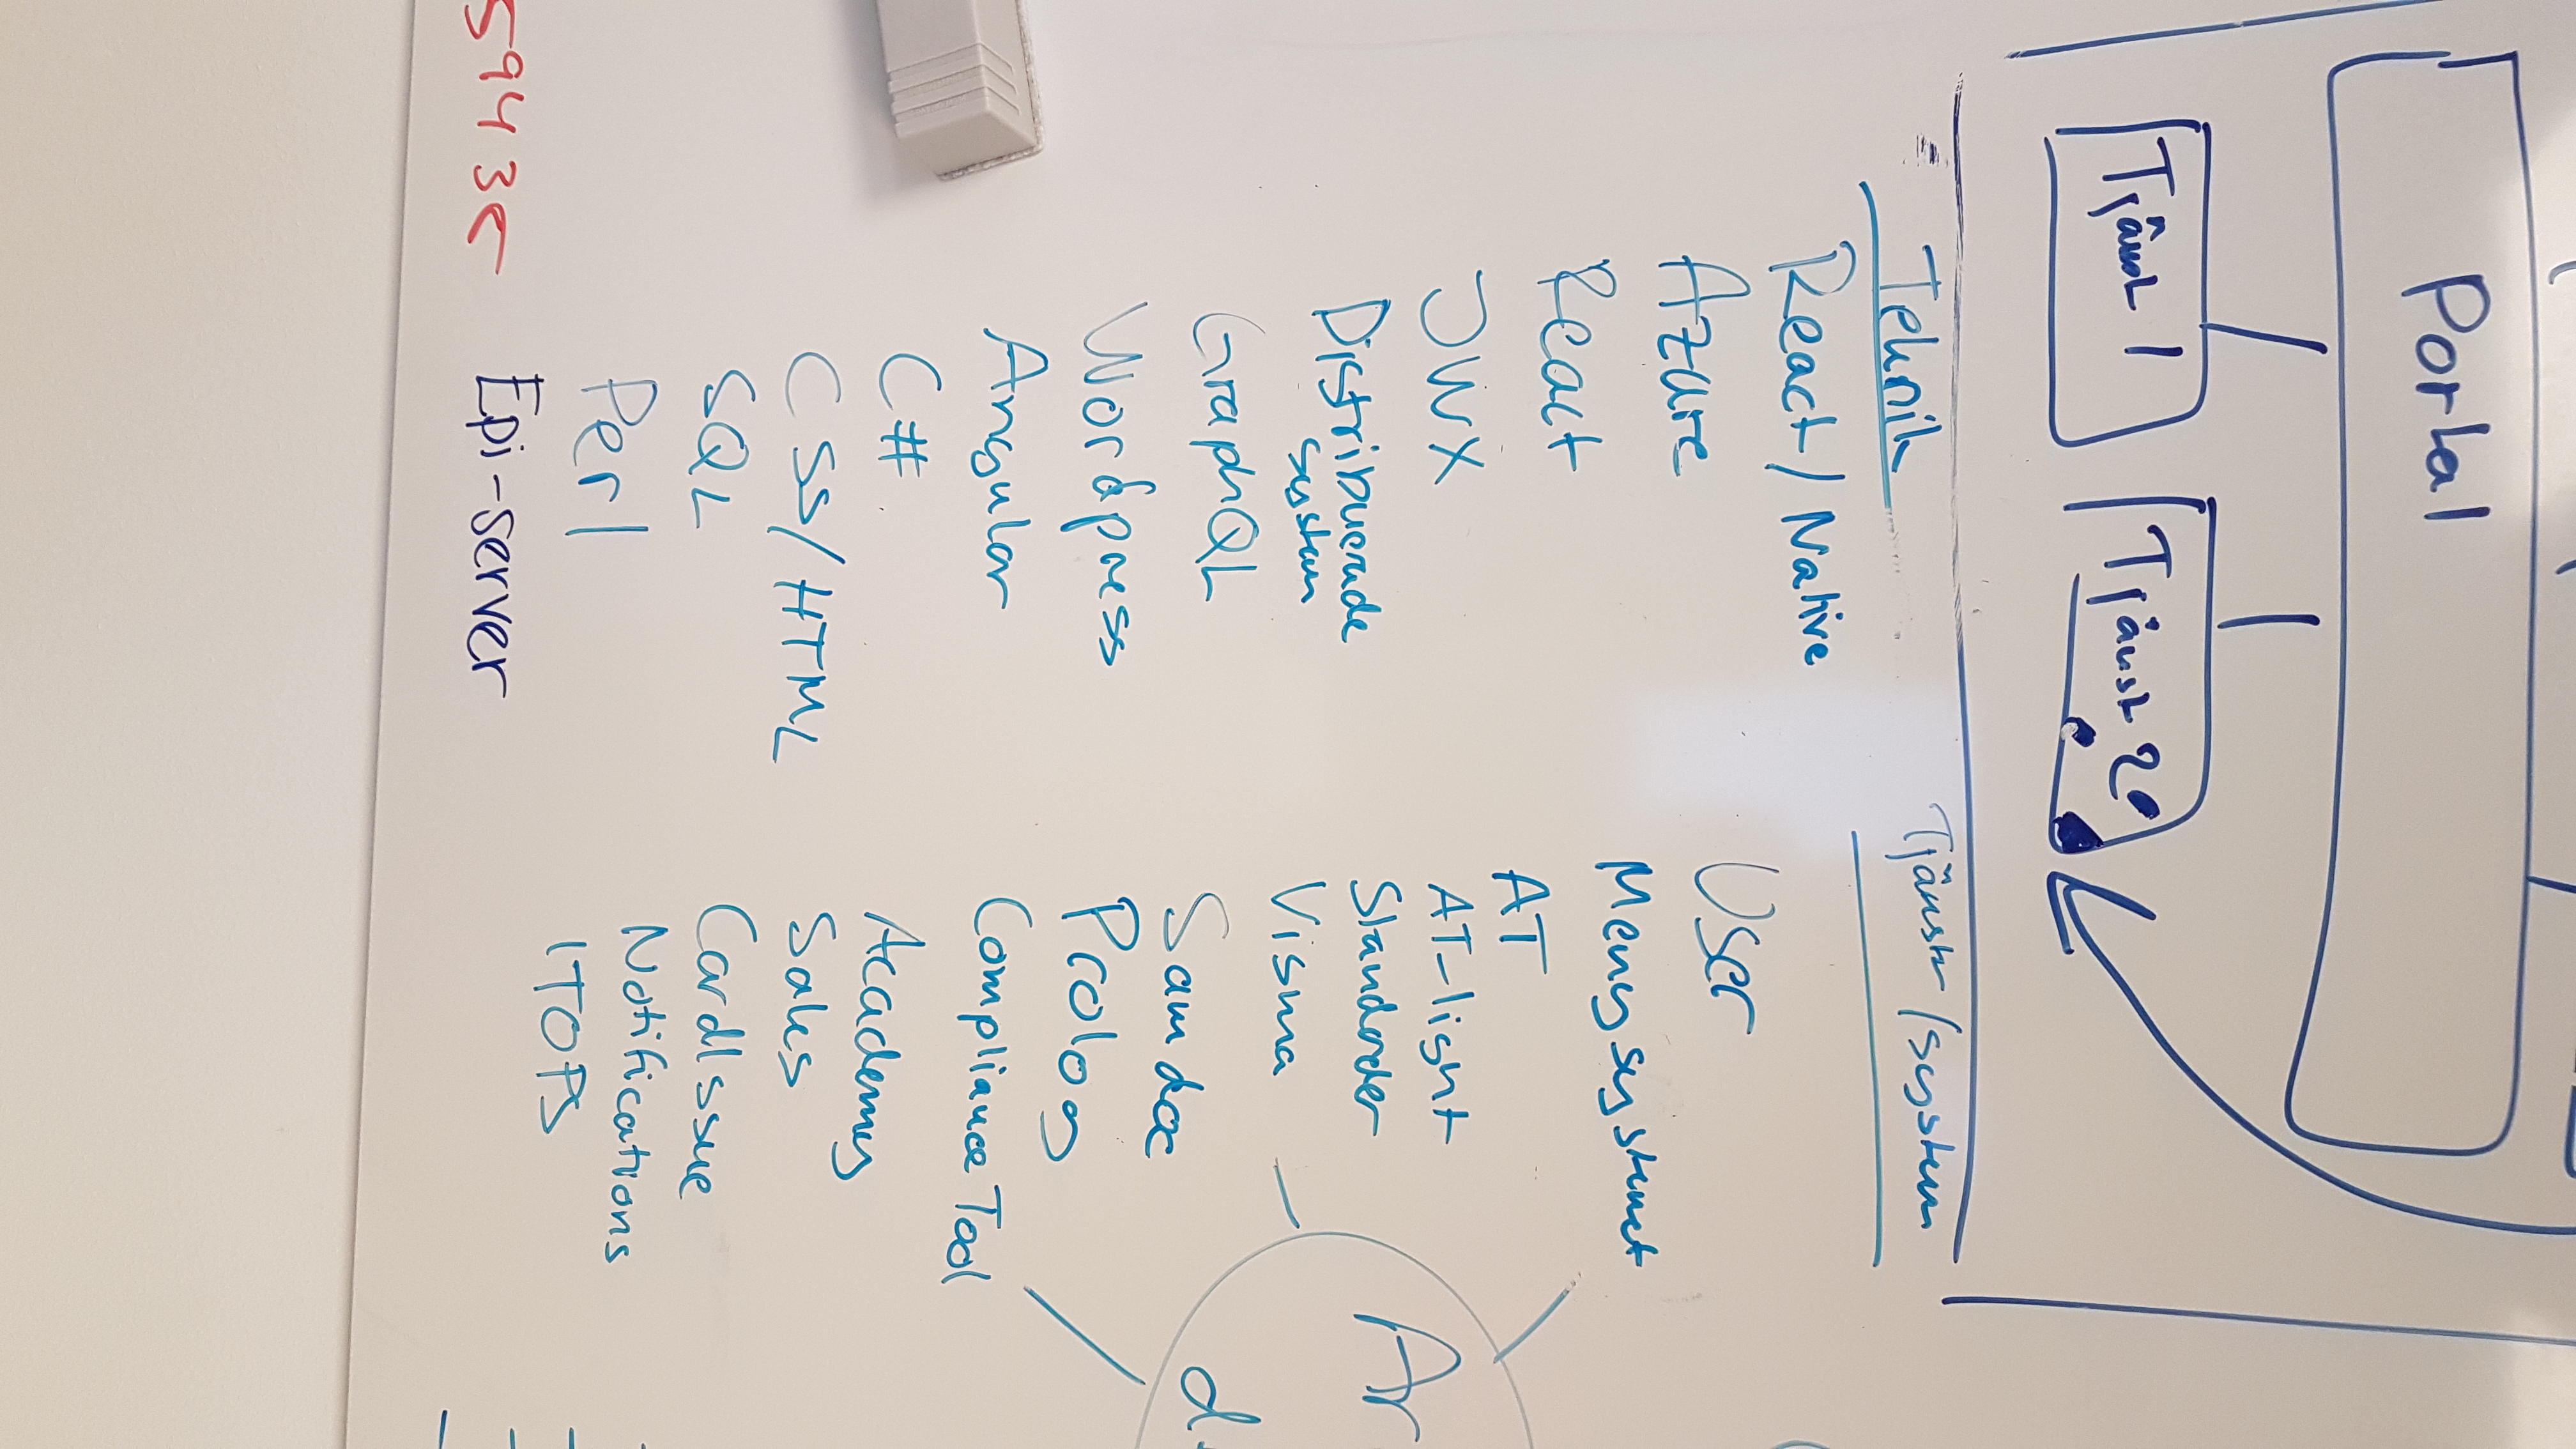 Portal
Tjänst 1
Tjänst 2
Teknik
React/Native
Azure
React
JWX
Distribuerade
system
GraphQL
Wordpress
Angular
C#
CSS/HTML
SQL
Perl
Epi-server
Tjänst/system
User
Menysystemet
AT
AT-light
Standarder
Visma
Sam doc
Prolog
Compliance Tool
Academy
Sales
CardIssue
Notifications
ITOPS
Ar
d
5943